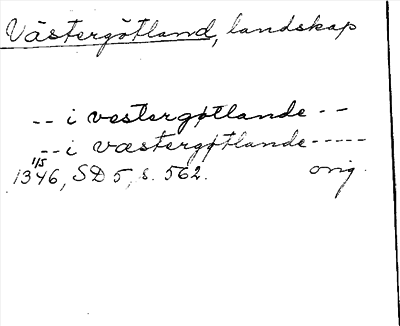 Västergötland, landskap
-- i vestergøtlande --
-- i væstergøtlande -----
1/5
1346, SD 5, s. 562. orig.